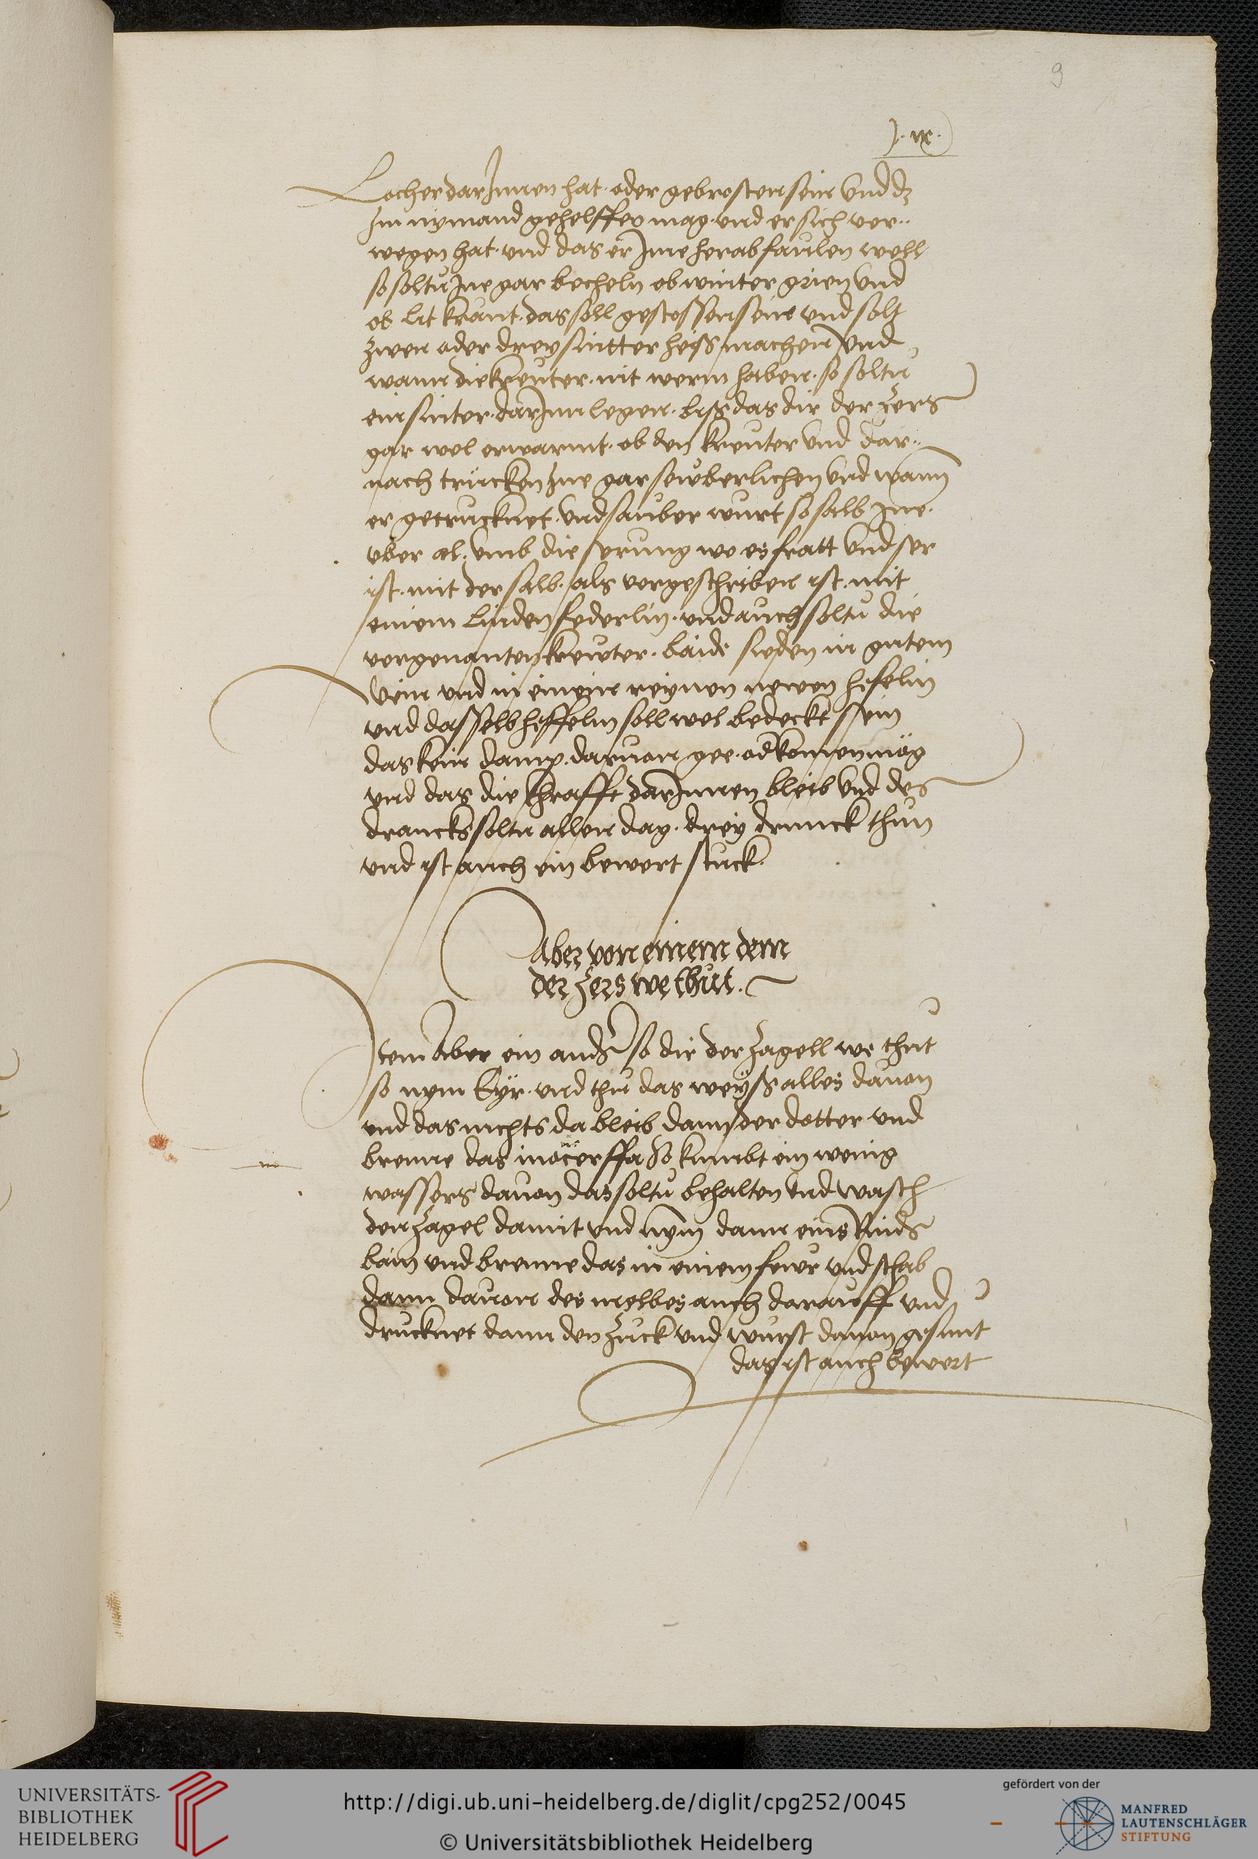 9
).ix.
Locher dar Innen hat · oder gebrosten sein Vnd dz
Im nymand gehelffen mag · vnd er sich ver··
wegen hat · vnd das er Ime herab faulen woll
so soltu Ine gar becheln ob winter grien Vnd
ob kraut · das soll gestossen sein vnd solt
zwen oder drey sintter heiss machen Vnd
wann die kreuter nit werm haben · so soltu
ein sinter dar Inn legen · biss das dir der zers
gar wol erwarmt · ob den kreuter vnd dar··
nach trücken Ine gar seuberlichen vnd wann
er getrucknet · vnd sauber wurt so salb Ine ·
vber al · vmb die serung wo es fratt vnd ser
ist · mit der salb · als vorgeschriben ist · mit
einem linden federlin · vnd auch soltu die
vorgenanten kreutter · baide sieden in gutem
Wein vnd in einem reynen newen hefelin
vnd dasselb heffelin soll wol bedeckt sein
das kein damp daruon gee · od komen mög
vnd das die khrafft dar Innen bleib Vnd des
drancks soltu allen dag · drey drunck thun
vnd ist auch ein bewert stuck ·
Aber von einem dem
der zers we thut ·
Item Aber ein anders so dir der zagell we thut
so nym Eyr · vnd thu das weyss alles dauon
vnd das nichts da bleib dann der dotter vnd
brenne das so kumbt ein wenig
wassers dauon das soltu behalten vnd wasch
den zagel damit vnd nym dann eins Rinds
bain vnd brenne das in einem fewr vnd schab
dann dauon des melbes auch darauff vnd
drucknet dann den zuck vnd wurst dauon gesunt
das ist auch bewert
UNIVERSITÄTS-
BIBLIOTHEK
HEIDELBERG
http://digi.ub.uni-heidelberg.de/diglit/cpg252/0045
© Universitätsbibliothek Heidelberg
gefördert von der
MANFRED
LAUTENSCHLÄGER
STIFTUNG